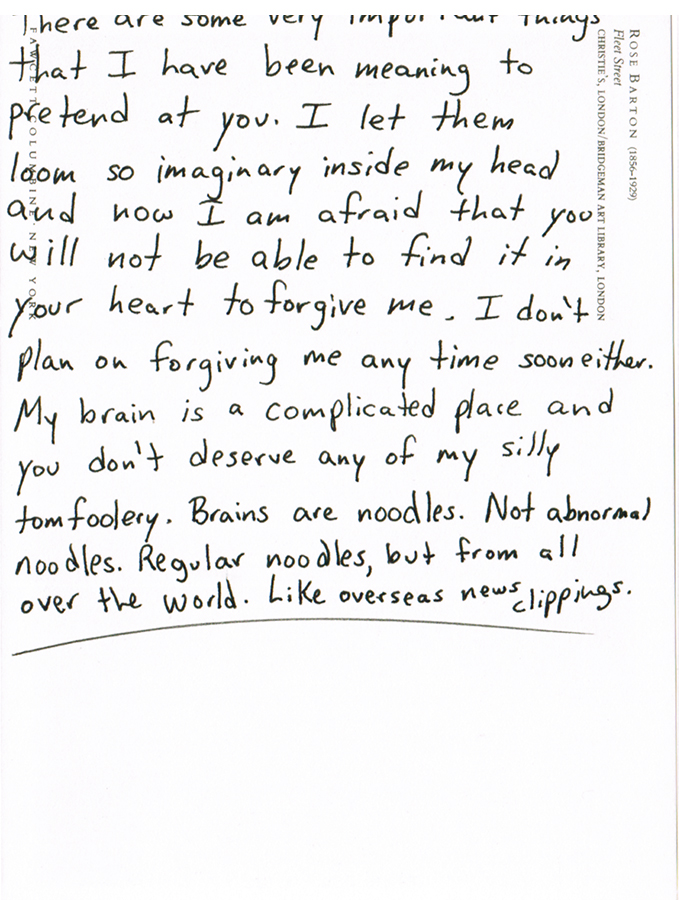 There are some very important things
that I have been meaning to
pretend at you. I let them
loom so imaginary inside my head
and now I am afraid that you
will not be able to find it in
your heart to forgive me. I don't
plan on forgiving me any time soon either.
My brain is a complicated place and
you don't deserve any of my silly
tomfoolery. Brains are noodles. Not abnormal
noodles. Regular noodles, but from all
over the world. Like overseas news clippings.
ROSE BARTON (1856–1929)
Fleet Street
CHRISTIE'S, LONDON/BRIDGEMAN ART LIBRARY, LONDON
FAWCETT COLUMBINE · NEW YORK